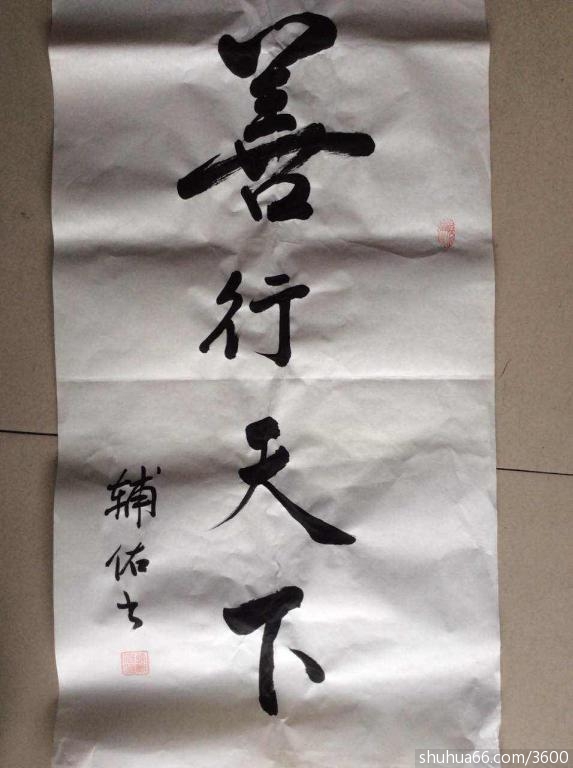 善行天下
辅佑书
shuhua66.com/3600